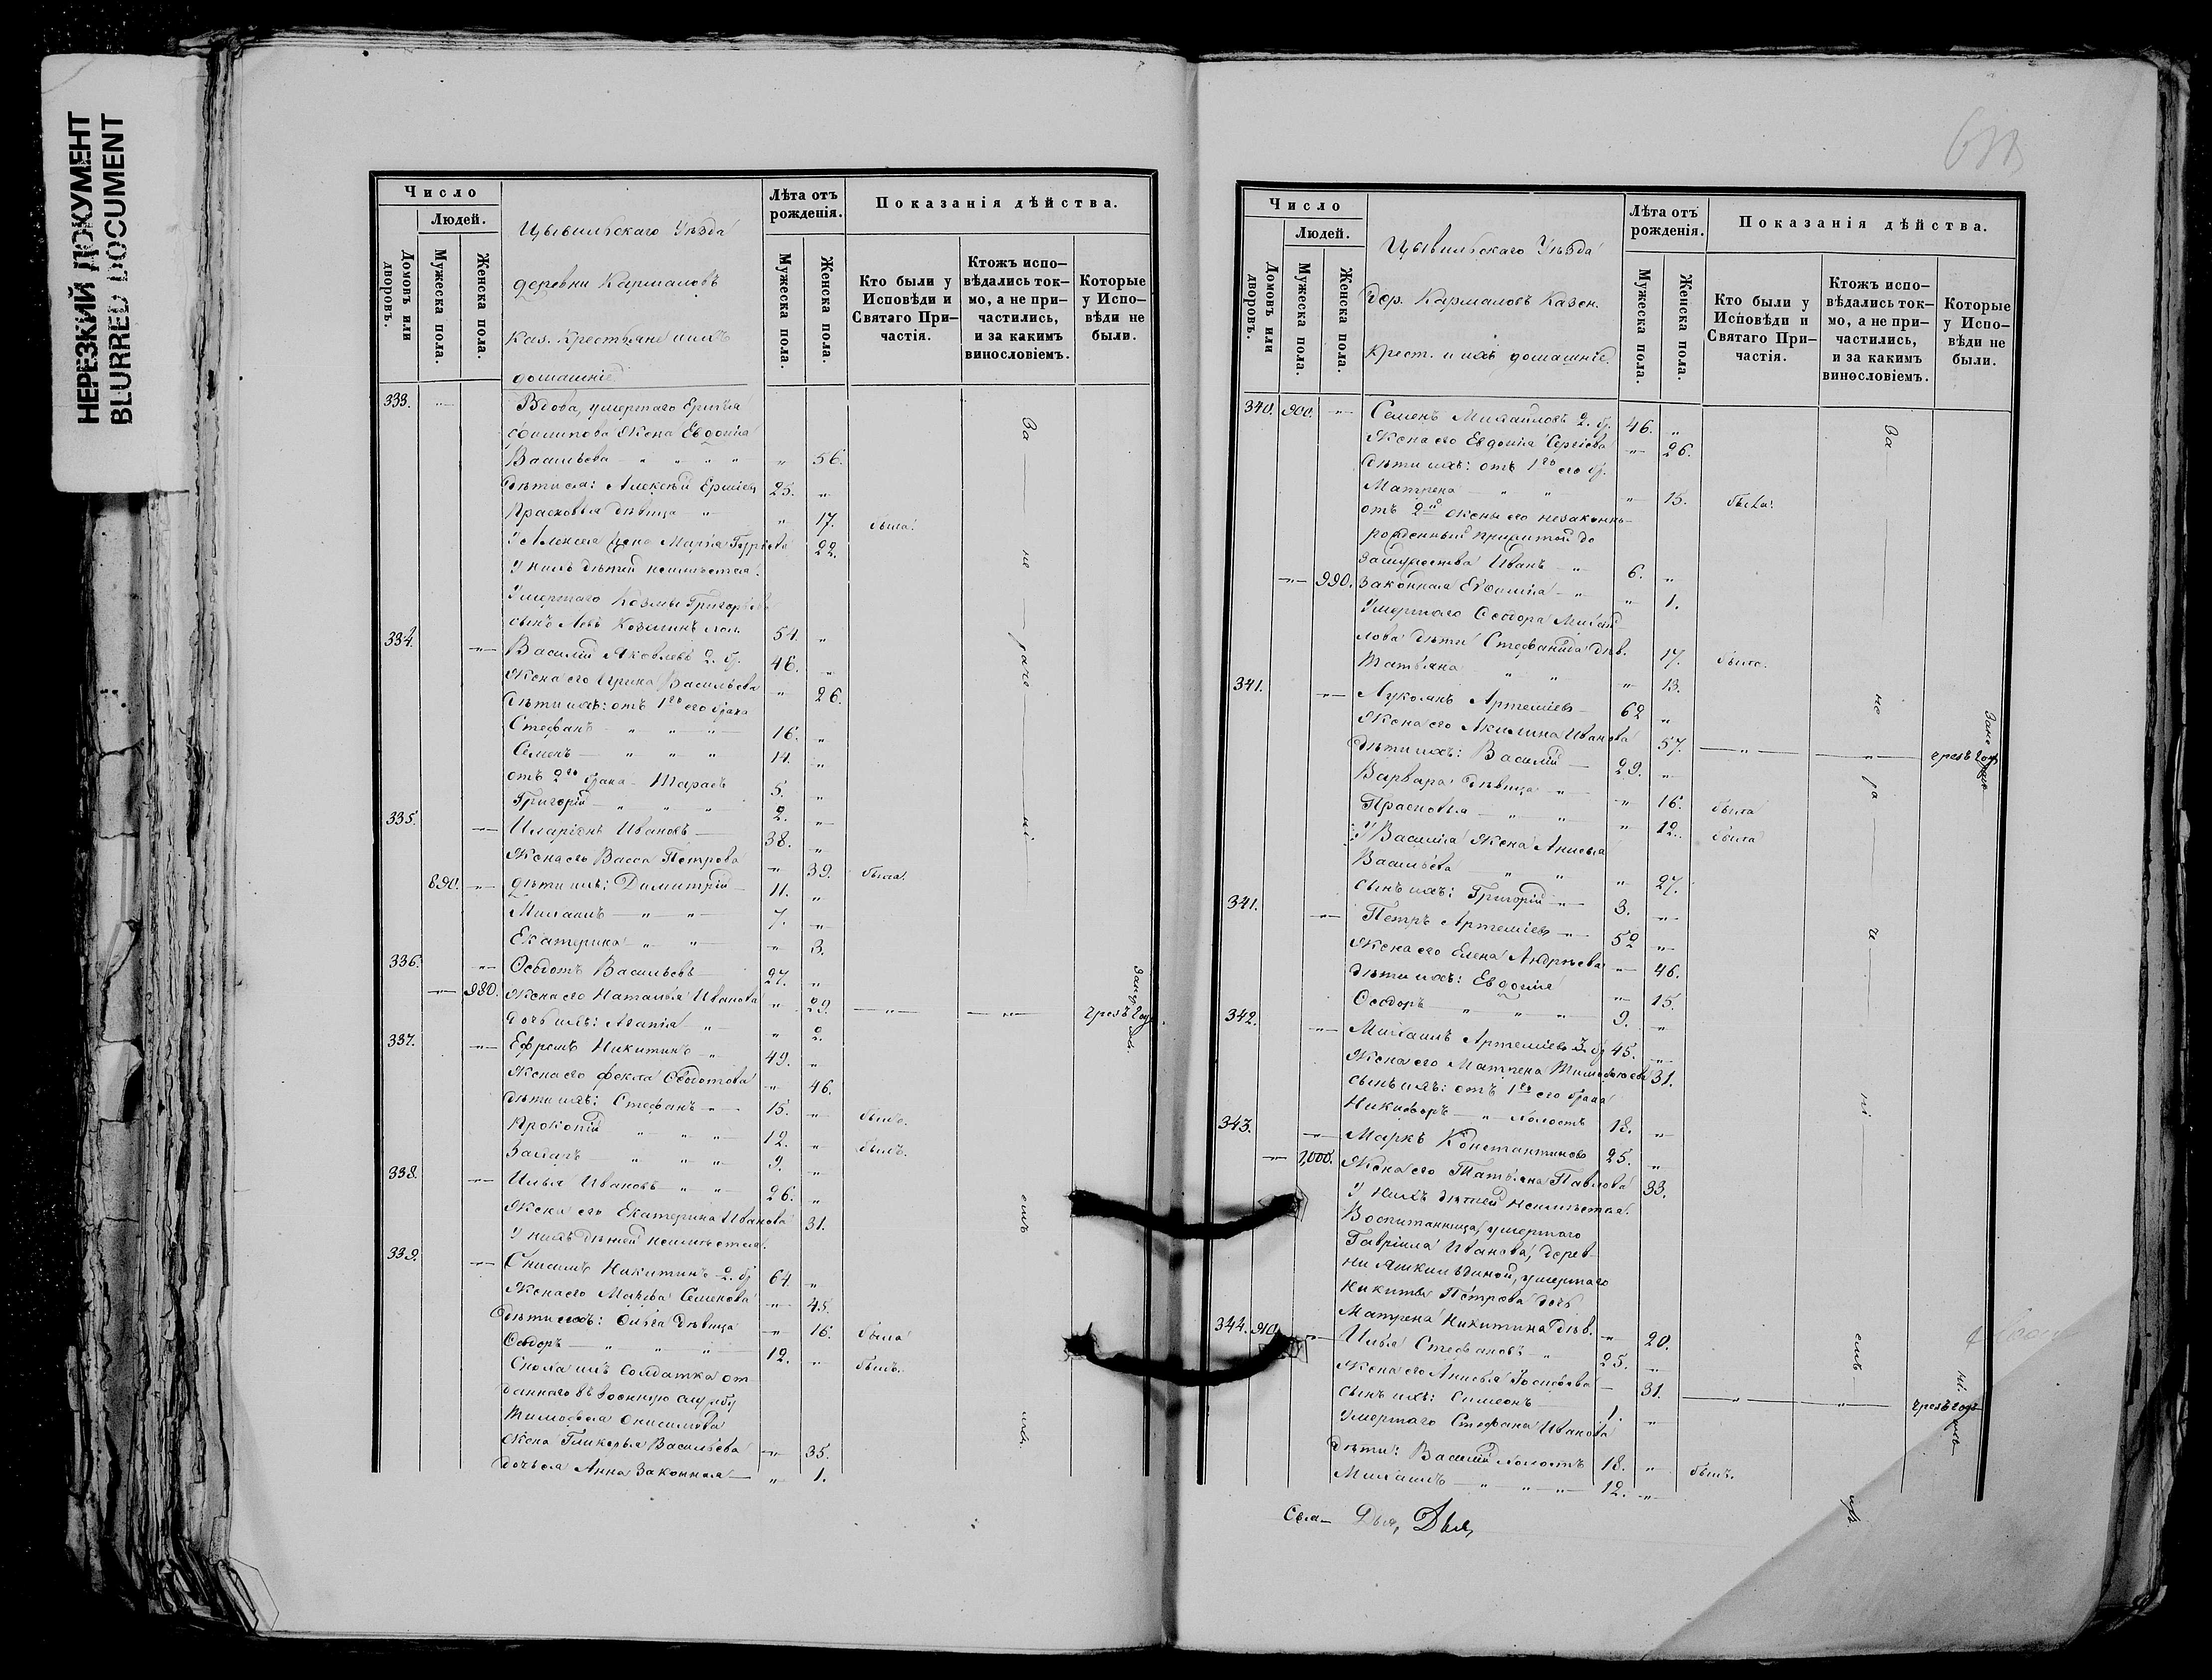 НЕРЕЗКИЙ ДОКУМЕНТ
BLURRED DOCUMENT
Число
Людей.
Домовъ или дворовъ.
Мужеска пола.
Женска пола.
Цывильскаго Уѣзда
деревни Кармаловъ
Каз. Крестьяне и ихъ
домашніе
Лѣта отъ рожденія.
Мужеска пола.
Женска пола.
Показанія дѣйства.
Кто были у Исповѣди и Святаго Причастія.
Ктожъ исповѣдались токмо, а не причастились, и за какимъ винословіемъ.
Которые у Исповѣди не были.
333. Вдова, умершаго
Филипова жена Евдокія
Васильева 56.
дѣти ея: Алексѣй 25.
Прасковья дѣвица 17. была
У Алексѣя жена Марія 22.
У нихъ дѣтей неимѣется.
Умершаго Козмы Григорьева
сынъ Левъ Козминъ 54.
334. Василій Яковлевъ 2. б. 46.
Жена его Ирина Васильева 26.
Дѣти ихъ: отъ 1го его брака
Стефанъ 16.
Семенъ 14.
отъ 2го брака Тарасъ 5.
Григорій 2.
335. Иларіонъ Ивановъ 38.
Жена его Васса Петрова 39. была
890. дѣти ихъ: Димитрій 11.
Михаилъ 7.
Екатерина 3.
336. Ѳеодотъ Васильевъ 27.
980. Жена его Наталья Иванова 29. чрезъ год
дочь ихъ: Агапія 2.
337. Ефремъ Никитинъ 49.
Жена его Фекла Ѳеодотова 46.
дѣти ихъ: Стефанъ 15. былъ.
Прокопій 12. былъ.
Захаръ 9.
338. Илья Ивановъ 26.
Жена его Екатерина Иванова 31.
У нихъ дѣтей неимѣется.
339. Онисимъ Никитинъ 2. б. 64
Жена его Марѳа Семенова 45.
Дѣти ихъ: Ольга дѣвица 16. была
Ѳеодоръ 12. былъ.
Сноха ихъ Солдатка от
даннаго въ военную службу
Тимофея Онисимова
жена Гликерья Васильева 35.
дочь ея Анна Законная 1.
За не раче ні емъ ихъ.
Число
Людей.
Домовъ или дворовъ.
Мужеска пола.
Женска пола.
Цывильскаго Уѣзда
Дер. Кармаловъ Казен.
Крест. и ихъ домашніе
Лѣта отъ рожденія.
Мужеска пола.
Женска пола.
Показанія дѣйства.
Кто были у Исповѣди и Святаго Причастія.
Ктожъ исповѣдались токмо, а не причастились, и за какимъ винословіемъ.
Которые у Исповѣди не были.
340. 900. Семенъ Михайловъ 2. б. 46.
Жена его Евдокія Сергіева 26.
Дѣти ихъ: отъ 1го его б.
Матрена 15. была.
отъ 2й жены его незаконно-
рожденный прижитой до
замужества Иванъ 6.
990. Законная Евфимія 1.
Умершаго Ѳеодора Михай
лова дѣти Стефанида дѣв. 17. была.
Татьяна 13.
341. Лукоянъ Артеміевъ 62
Жена его Акилина Иванова 57. чрезъ год
Дѣти ихъ: Василій 29.
Варвара дѣвица 16. была
Прасковья 12. была
У Василія Жена Анисья
Васильева 27.
сынъ ихъ: Григорій 3.
341. Петръ Артеміевъ 52
Жена его Елена Андреева 46.
Дѣти ихъ: Евдокія 15.
Ѳеодоръ 9.
342. Михаилъ Артеміевъ 3. б. 45.
Жена его Матрена Тимофеева 31.
сынъ ихъ: отъ 1го его брака
Никифоръ холостъ 18.
343. Маркъ Константиновъ 25.
1,000. Жена его Татьяна Павлова 33.
У нихъ дѣтей неимѣется.
Воспитанница, умершаго
Гавріила Иванова, дерев
ни Яшкильдиной, умершаго
Никиты Петрова дочь
Матрена Никитина дѣв. 20.
344. 910. Илья Стефановъ 25.
Жена его Анисья Іосифова 31. чрезъ годъ
сынъ ихъ: Симеонъ 1.
Умершаго Стефана Иванова
дѣти: Василій холостъ 18. былъ.
Михаилъ 12.
За не ра че ні емъ ихъ.